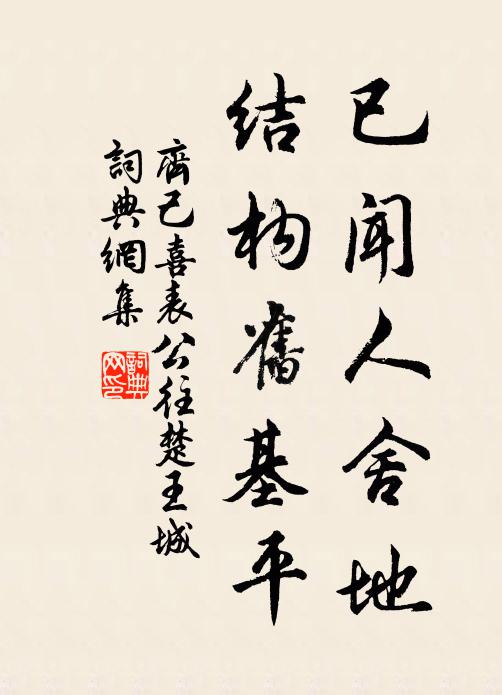 已闻人舍地
结构舊基平
齊己喜表公往楚王城
詞典網集
詞典网印